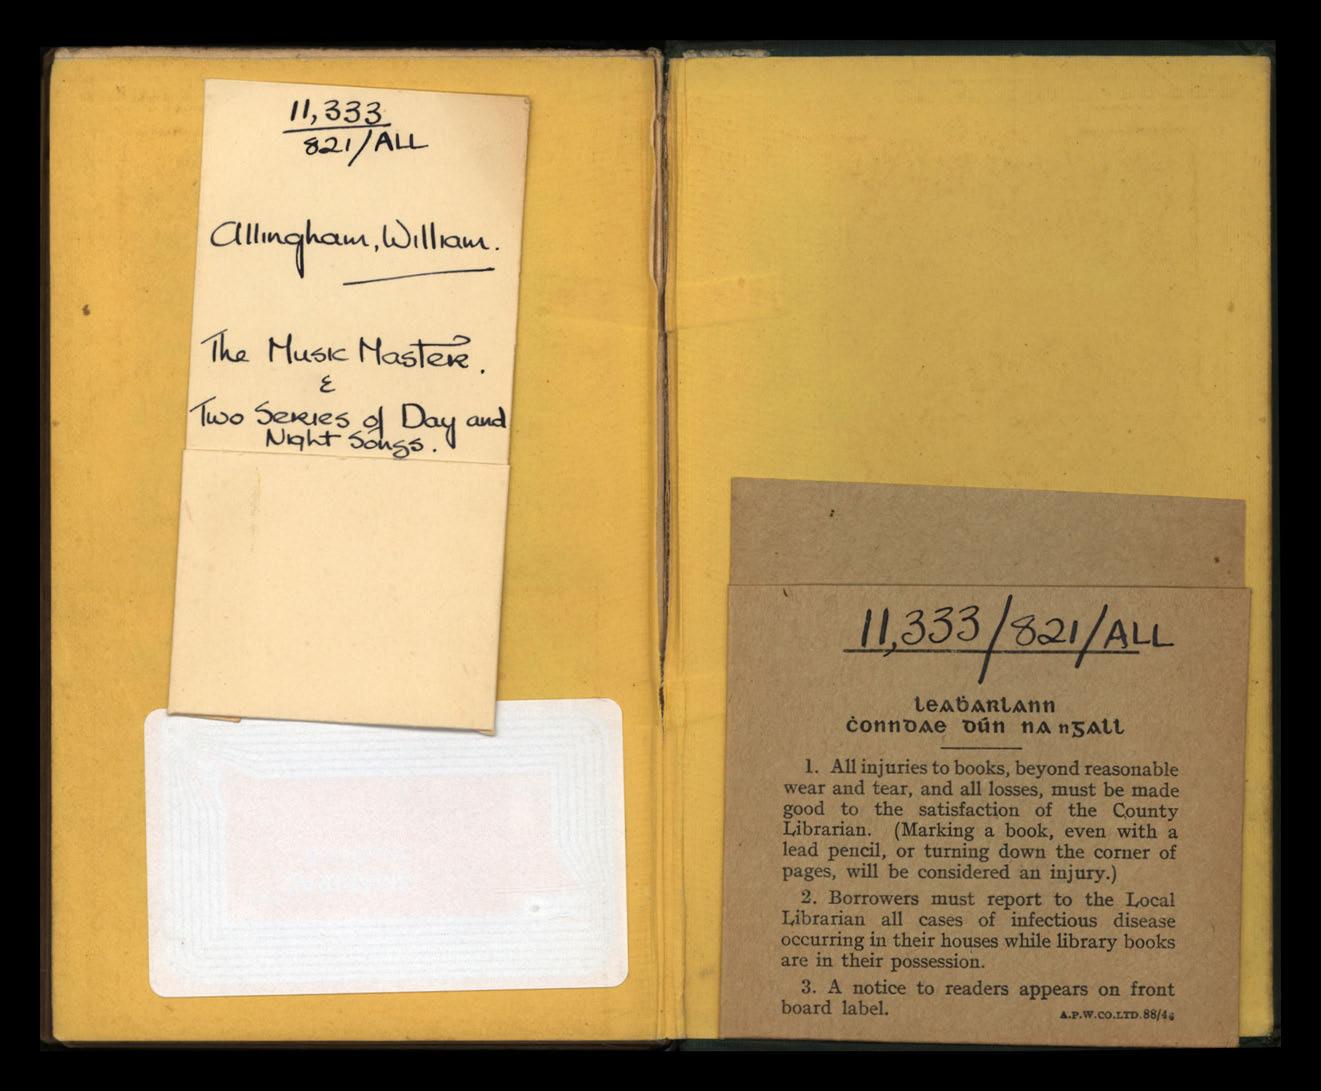 11,333
821/ALL
Allingham, William.
The Music Master.
&
Two Series of Day and
Night Songs.
11,333/821/ALL
leaḃarlann
ċonndae dún na ngall
1. All injuries to books, beyond reasonable
wear and tear, and all losses, must be made
good to the satisfaction of the County
Librarian. (Marking a book, even with a
lead pencil, or turning down the corner of
pages, will be considered an injury.)
2. Borrowers must report to the Local
Librarian all cases of infectious disease
occurring in their houses while library books
are in their possession.
3. A notice to readers appears on front
board label.
A.P.W.CO.LTD.88/46